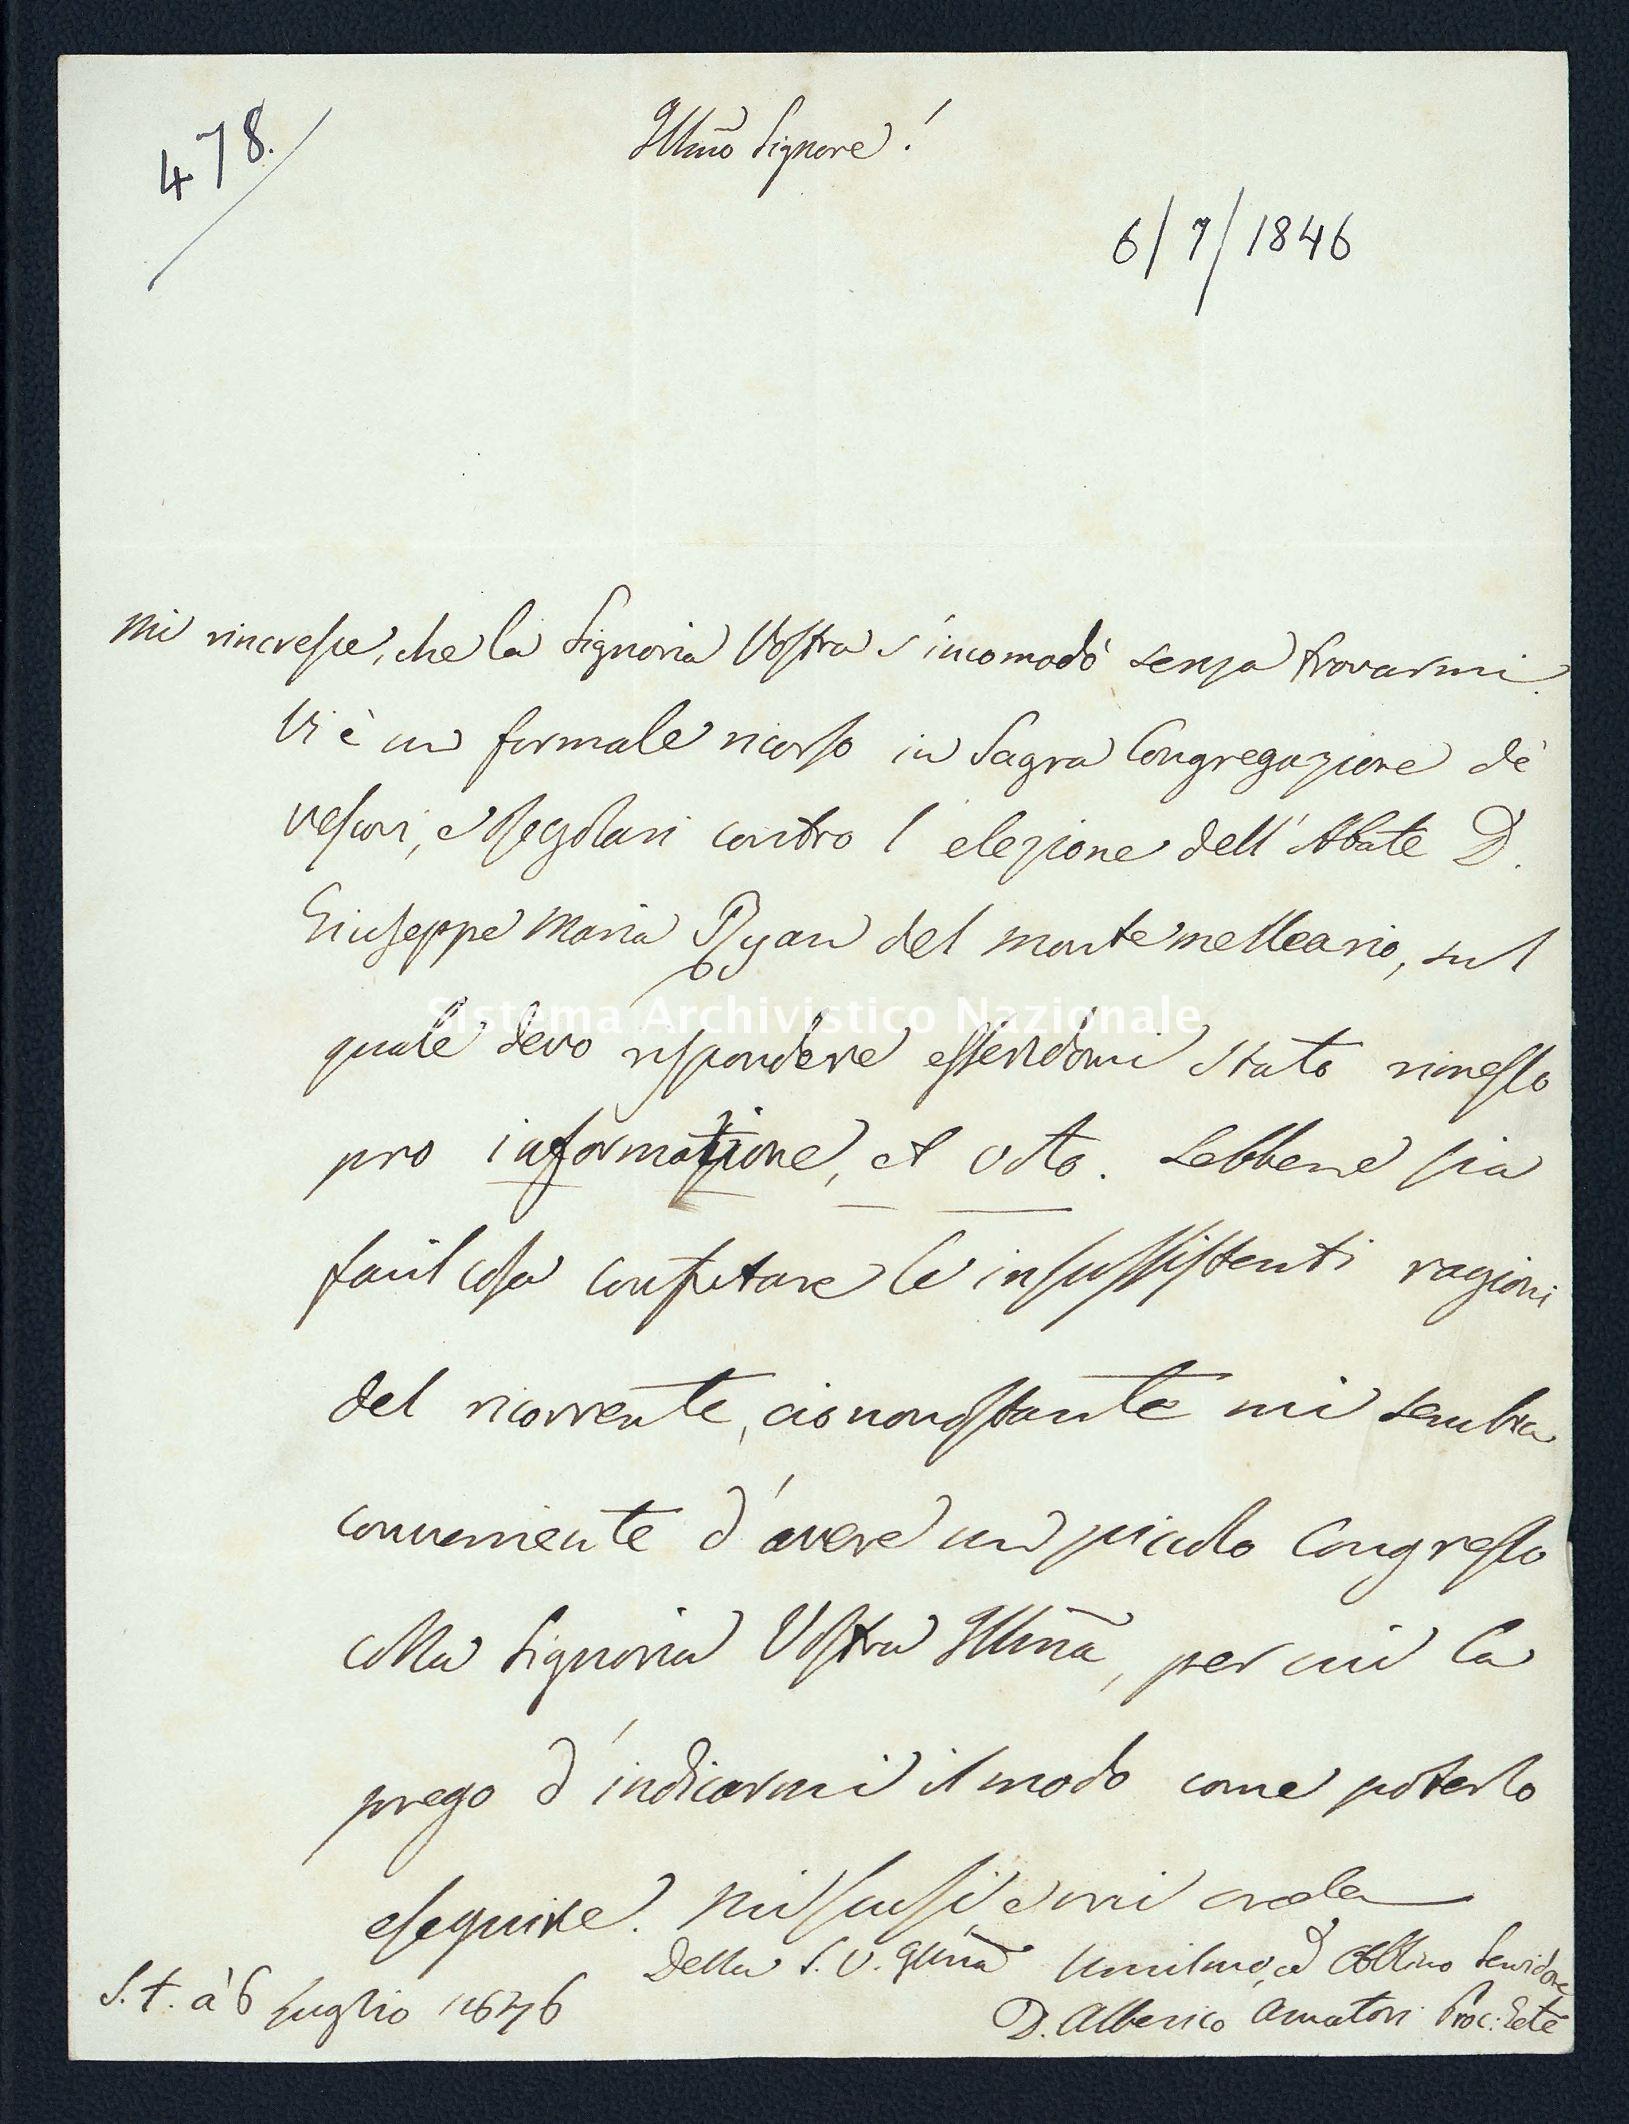 478.
Illmo Signore!
6/7/1846
Mi rincresce, che la Signoria Vostra s'incomodò senza trovarmi.
Vi è un formale ricorso in Sagra Congregazione de'
Vescovi, e Regolari contro l'elezione dell'Abate D.
Giuseppe Maria Ryan del monte melleario, sul
Sistema Archivistico Nazionale
quale devo rispondere essendomi stato rimesso
pro informatione, et voto. Sebbene sia
facil cosa confutare le insussistenti ragioni
del ricorrente, cionnonostante mi sembra
conveniente d'avere un piccolo Congresso
colla Signoria Vostra Illma, per cui la
prego d'indicarmi il modo come poterlo
eseguire. Mi scusi e mi creda
Della S. V. Illma Umilmo, ed Obblmo Servidore
S. t. à 6 Luglio 1846
D. Alberico Amatori Proc: